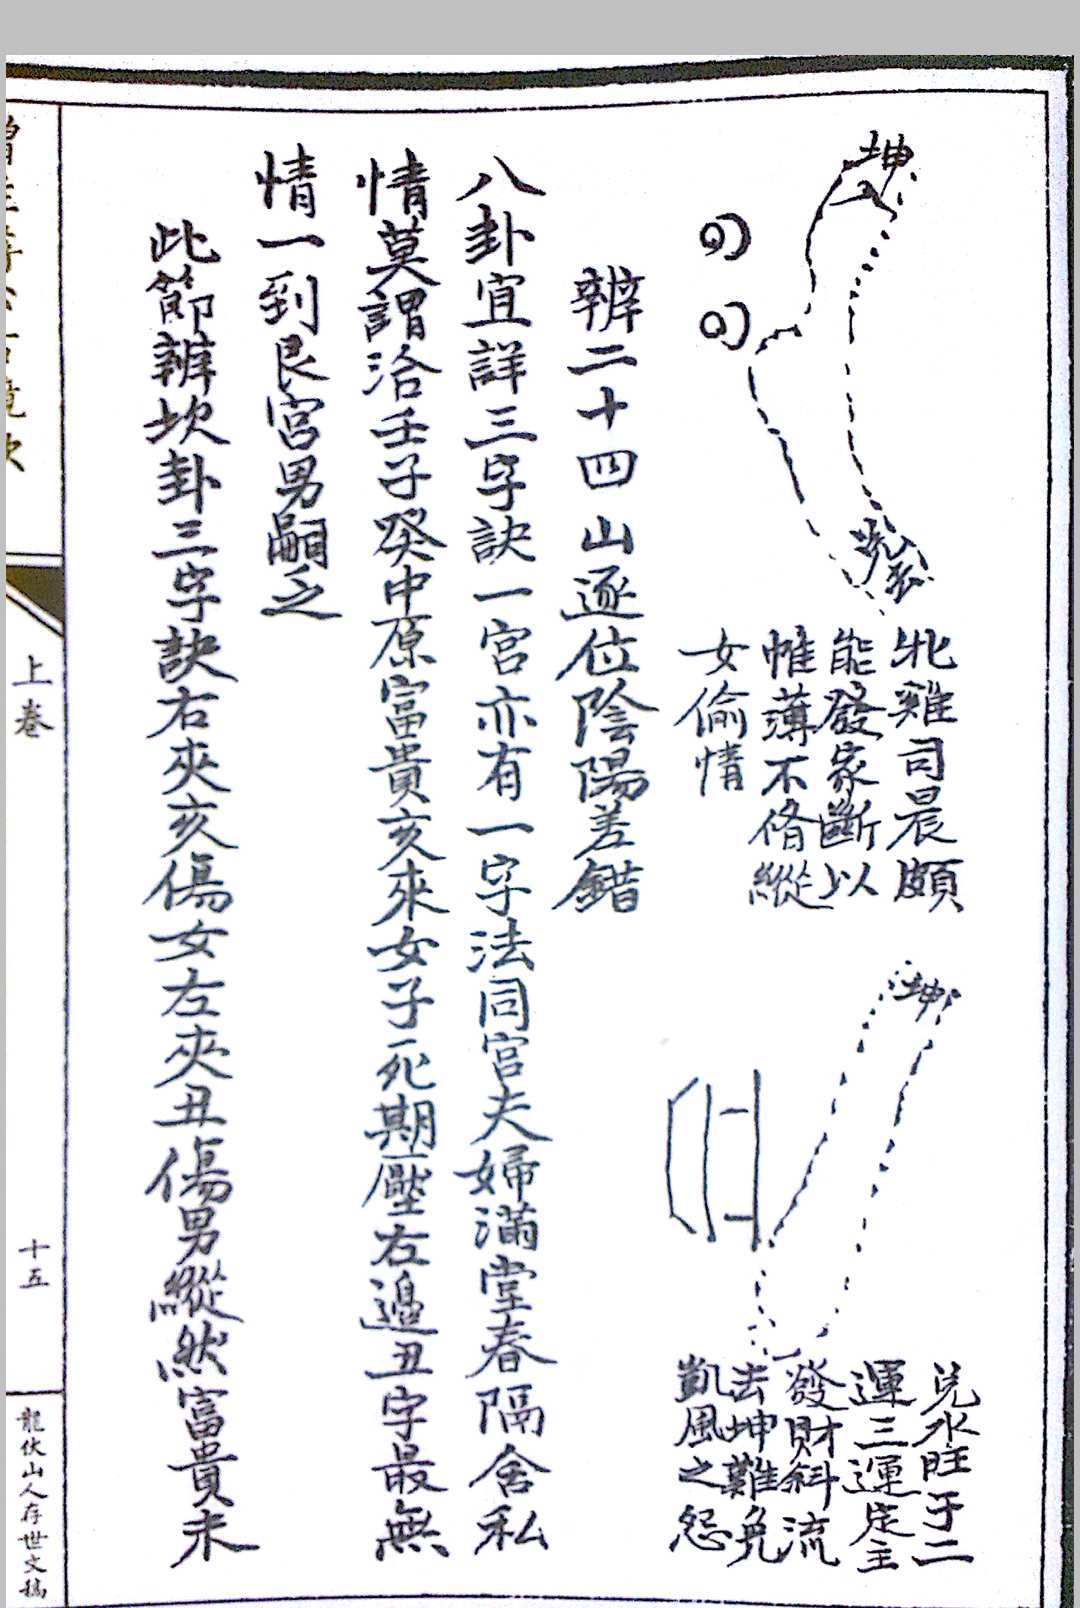 坤
兌
牝雞司晨頗
能發家斷以
帷薄不脩縱
女偷情
坤
兌水旺于二
運三運定主
發財斜流
去坤難免
凱風之怨
辨二十四山逐位陰陽差錯
八卦宜詳三字訣一宮亦有一字法同宮夫婦滿堂春隔舍私
情莫謂洽壬子癸中原富貴亥來女子死期壓右邊丑字最無
情一到艮宮男嗣乏
此節辨坎卦三字訣右夾亥傷女左夾丑傷男縱然富貴未
上卷
十五
龍伏山人存世文稿